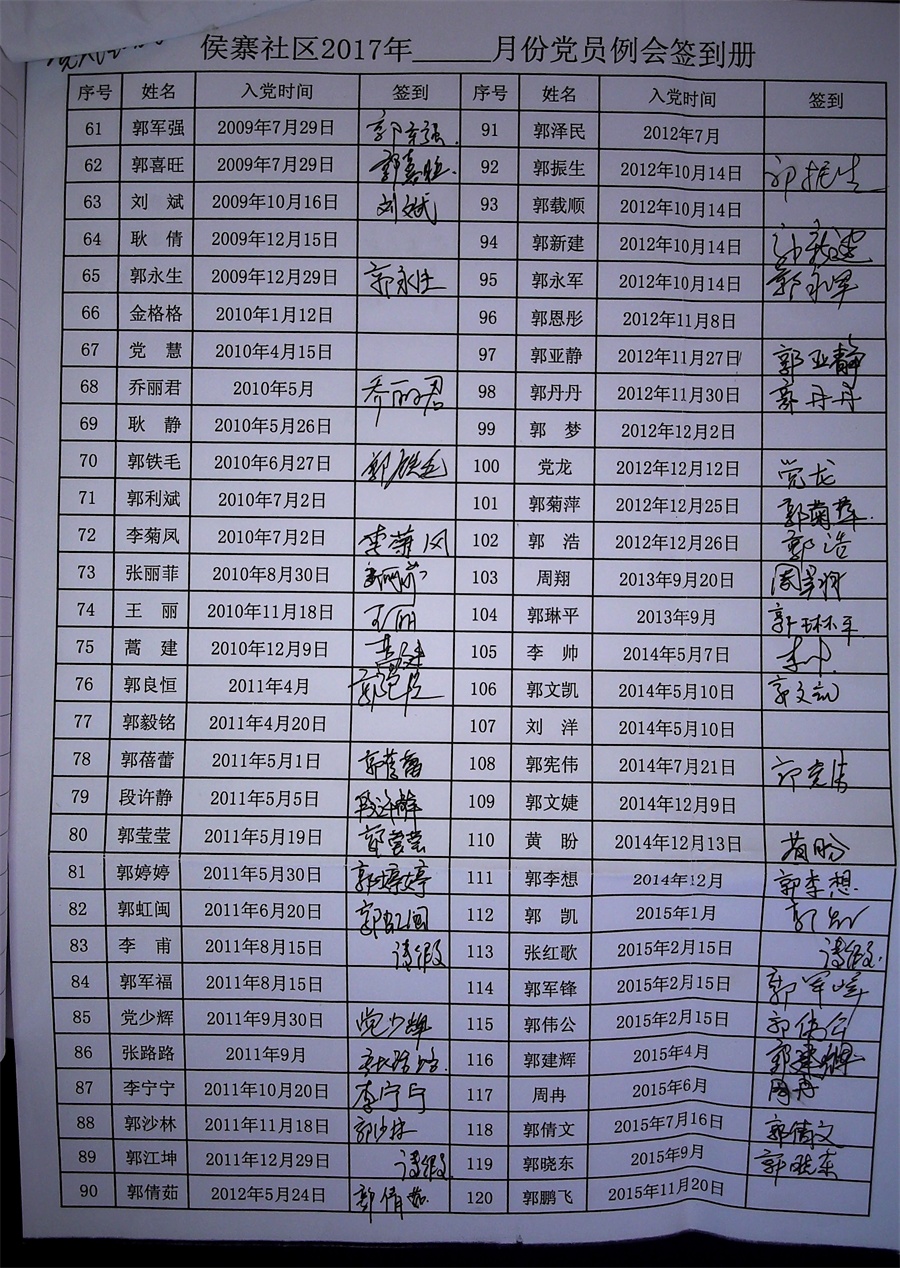 侯寨社区2017年_____月份党员例会签到册
序号 姓名 入党时间 签到 序号 姓名 入党时间 签到
61 郭军强 2009年7月29日 郭军强 91 郭泽民 2012年7月
62 郭喜旺 2009年7月29日 郭喜旺 92 郭振生 2012年10月14日 郭振生
63 刘 斌 2009年10月16日 刘斌 93 郭载顺 2012年10月14日
64 耿 倩 2009年12月15日 94 郭新建 2012年10月14日 郭新建
65 郭永生 2009年12月29日 郭永生 95 郭永军 2012年10月14日 郭永军
66 金格格 2010年1月12日 96 郭恩彤 2012年11月8日
67 党 慧 2010年4月15日 97 郭亚静 2012年11月27日 郭亚静
68 乔丽君 2010年5月 乔丽君 98 郭丹丹 2012年11月30日 郭丹丹
69 耿 静 2010年5月26日 99 郭 梦 2012年12月2日
70 郭铁毛 2010年6月27日 郭铁毛 100 党龙 2012年12月12日 党龙
71 郭利斌 2010年7月2日 101 郭菊萍 2012年12月25日 郭菊萍
72 李菊凤 2010年7月2日 李菊凤 102 郭 浩 2012年12月26日 郭浩
73 张丽菲 2010年8月30日 103 周翔 2013年9月20日 周翔
74 王 丽 2010年11月18日 王丽 104 郭琳平 2013年9月 郭琳平
75 蒿 建 2010年12月9日 蒿建 105 李 帅 2014年5月7日 李帅
76 郭良恒 2011年4月 郭良恒 106 郭文凯 2014年5月10日 郭文凯
77 郭毅铭 2011年4月20日 107 刘 洋 2014年5月10日
78 郭蓓蕾 2011年5月1日 郭蓓蕾 108 郭宪伟 2014年7月21日 郭宪伟
79 段许静 2011年5月5日 段许静 109 郭文婕 2014年12月9日
80 郭莹莹 2011年5月19日 郭莹莹 110 黄 盼 2014年12月13日 黄盼
81 郭婷婷 2011年5月30日 郭婷婷 111 郭李想 2014年12月 郭李想
82 郭虹闽 2011年6月20日 郭虹闽 112 郭 凯 2015年1月 郭凯
83 李 甫 2011年8月15日 请假 113 张红歌 2015年2月15日 请假
84 郭军福 2011年8月15日 114 郭军锋 2015年2月15日 郭军锋
85 党少辉 2011年9月30日 党少辉 115 郭伟公 2015年2月15日 郭伟公
86 张路路 2011年9月 张路路 116 郭建辉 2015年4月 郭建辉
87 李宁宁 2011年10月20日 李宁宁 117 周冉 2015年6月 周冉
88 郭沙林 2011年11月18日 郭沙林 118 郭倩文 2015年7月16日 郭倩文
89 郭江坤 2011年12月29日 请假 119 郭晓东 2015年9月 郭晓东
90 郭倩茹 2012年5月24日 郭倩茹 120 郭鹏飞 2015年11月20日